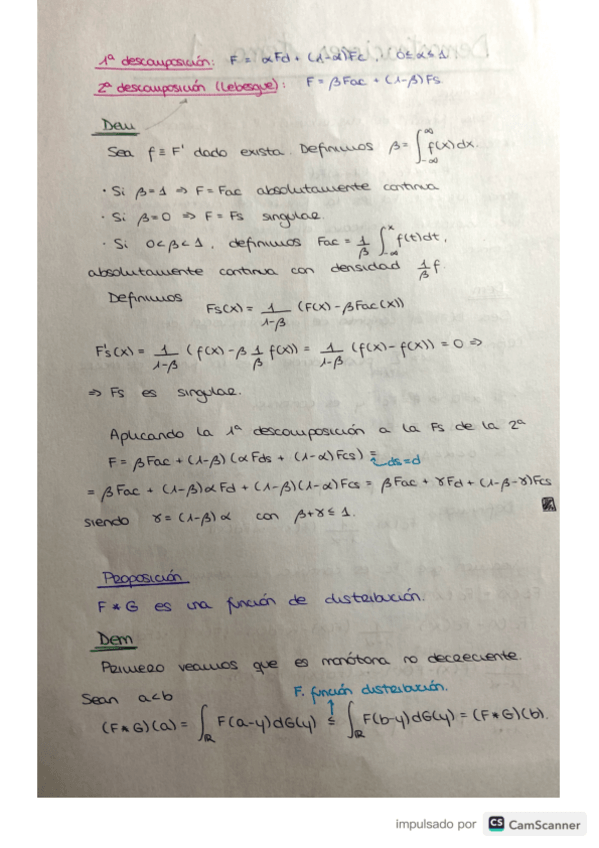 1ª descomposición: F = αFd + (1-α)Fc, 0≤ α ≤ 1
2ª descomposición (Lebesgue): F = βFac + (1-β)Fs
Dem
Sea f ≡ F' dado exista. Definimos β = ∫_{-∞}^{∞} f(x)dx.
· Si β=1 ⇒ F = Fac absolutamente continua
· Si β=0 ⇒ F = Fs singular.
· Si 0<β<1, definimos Fac = 1/β ∫_{-∞}^{x} f(t)dt,
absolutamente continua con densidad 1/β f.
Definimos
Fs(x) = 1/(1-β) (F(x) - βFac(x))
F's(x) = 1/(1-β) (f(x) - β 1/β f(x)) = 1/(1-β) (f(x) - f(x)) = 0 ⇒
⇒ Fs es singular.
Aplicando la 1ª descomposición a la Fs de la 2ª
F = βFac + (1-β)(αFds + (1-α)Fcs) = ds=d
= βFac + (1-β)αFd + (1-β)(1-α)Fcs = βFac + γFd + (1-β-γ)Fcs
siendo γ = (1-β)α con β+γ ≤ 1.
Proposición
F * G es una función de distribución.
Dem
Primero veamos que es monótona no decreciente.
Sean a<b
F. función distribución.
(F*G)(a) = ∫_ℝ F(a-y)dG(y) ≤ ∫_ℝ F(b-y)dG(y) = (F*G)(b).
impulsado por CS CamScanner